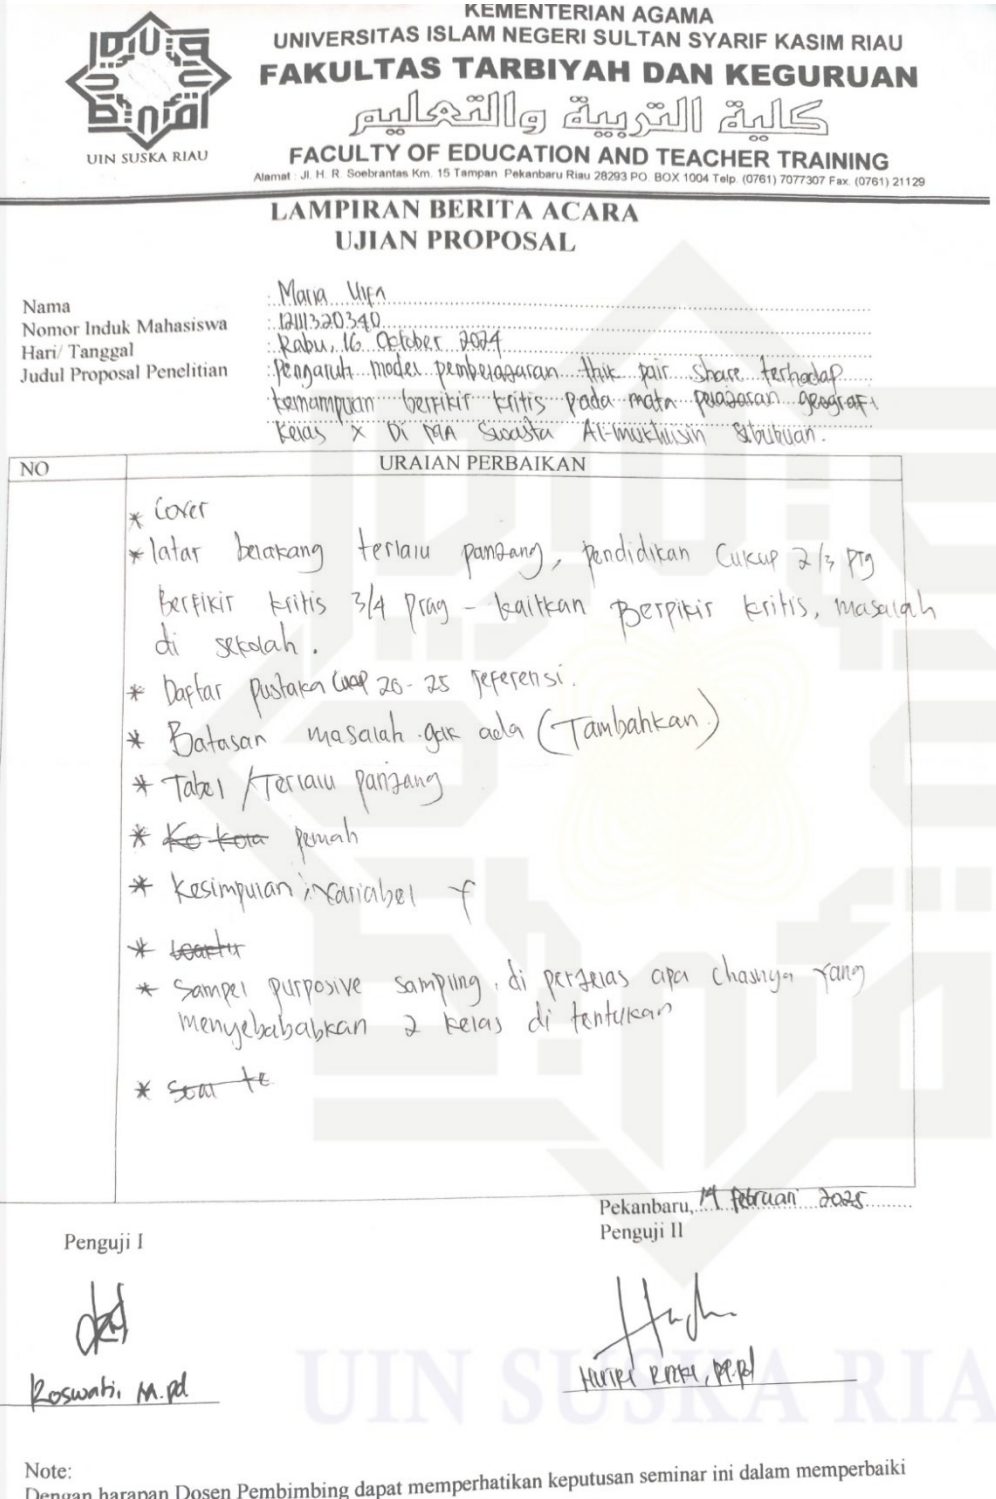 KEMENTERIAN AGAMA
UNIVERSITAS ISLAM NEGERI SULTAN SYARIF KASIM RIAU
FAKULTAS TARBIYAH DAN KEGURUAN
كلية التربية والتعليم
FACULTY OF EDUCATION AND TEACHER TRAINING
Alamat : Jl. H. R. Soebrantas Km. 15 Tampan Pekanbaru Riau 28293 PO. BOX 1004 Telp. (0761) 7077307 Fax. (0761) 21129
UIN SUSKA RIAU
LAMPIRAN BERITA ACARA
UJIAN PROPOSAL
Nama : Maria Ulfa
Nomor Induk Mahasiswa : 12111320340
Hari/ Tanggal : Rabu, 16 October 2024
Judul Proposal Penelitian : Pengaruh model pembelajaran thik pair share terhadap
kemampuan berfikir kritis pada mata pelajaran geografi
kelas X Di MA Swasta Al-mukhlisin Sibuhuan.
NO URAIAN PERBAIKAN
* Cover
* latar belakang terlalu panjang, pendidikan Cukup 2/3 prg
Berfikir kritis 3/4 prag - kaitkan Berpikir kritis, masalah
di sekolah.
* Daftar pustaka 20-25 referensi.
* Batasan masalah gak ada (Tambahkan)
* Tabel / Terlalu panjang
* Ko kota
* Kesimpulan : Variabel Y
* Sampel purposive sampling, di perjelas apa yang
menyebababkan 2 kelas di tentukan
* Soal te
Pekanbaru, 14 februari 2025
Penguji I Penguji II
Roswati, M.pd
M.Pd
UIN SUSKA RIA
Note:
Dengan harapan Dosen Pembimbing dapat memperhatikan keputusan seminar ini dalam memperbaiki